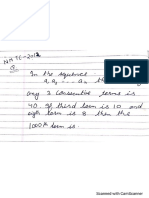 NATE-2012
Q
In the sequence
a, a₂ ... a₅ th
any 3 consecutive terms is
40. If third term is 10 and
eigh term is 8 then the
1000th term is
Scanned with CamScanner